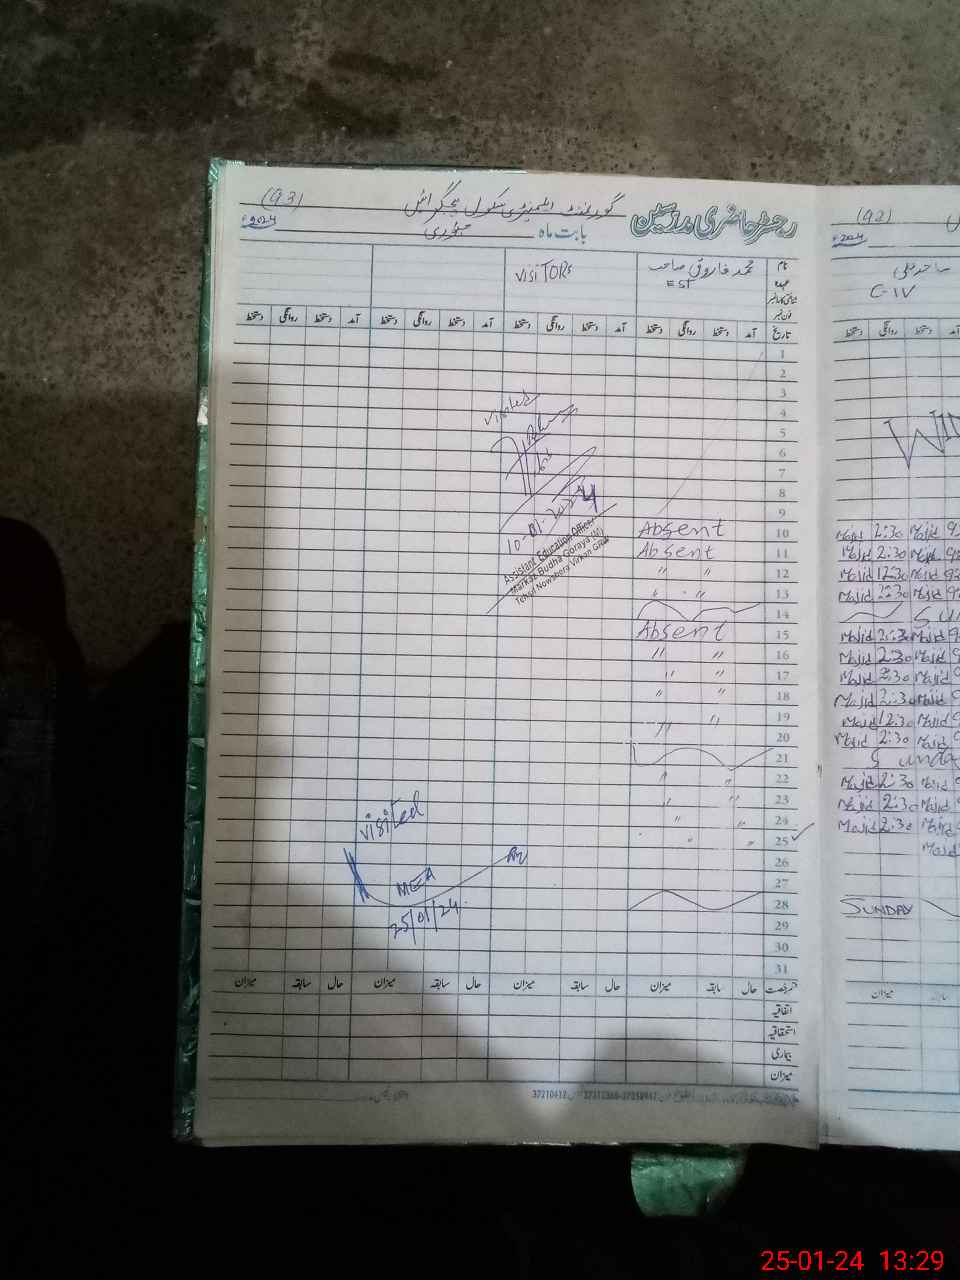 (93)
گورنمنٹ ایلیمنٹری سکول
رجسٹر حاضری مدرسین
2024ء
بابت ماہ جنوری
نام
محمد فاروق صاحب
VISITORS
عہدہ
EST
فون نمبر
تاریخ
آمد دستخط روانگی دستخط آمد دستخط روانگی دستخط آمد دستخط روانگی دستخط آمد دستخط روانگی دستخط
1
2
3
4
5
6
7
8
9
10 Absent
11 Absent
12 " "
13 " "
14
15 Absent
16 " "
17 " "
18 " "
19 " "
20
21
22 " "
23 " "
24 " "
25 " "
26
27
28
29
30
31
visited
10-01-2024
Assistant Education Officer
Markaz Budha Goraya (M)
Tehsil Nowshera Virkan GRW
visited
MEA
25/01/24
حال سابقہ میزان حال سابقہ میزان حال سابقہ میزان حال سابقہ میزان
اتفاقیہ
استحقاقیہ
بیماری
میزان
(92)
2024ء
C-IV
Majid 2:30 Majid
Majid 2:30 Majid
Majid 12:30 Majid
Majid 2:30 Majid
Majid 2:30 Majid
Majid 2:30 Majid
Majid 2:30 Majid
Majid 2:30 Majid
Majid 12:30 Majid
Majid 2:30 Majid
Majid 2:30 Majid
Majid 2:30 Majid
Majid 2:30 Majid
Majid
SUNDAY
میزان
25-01-24 13:29